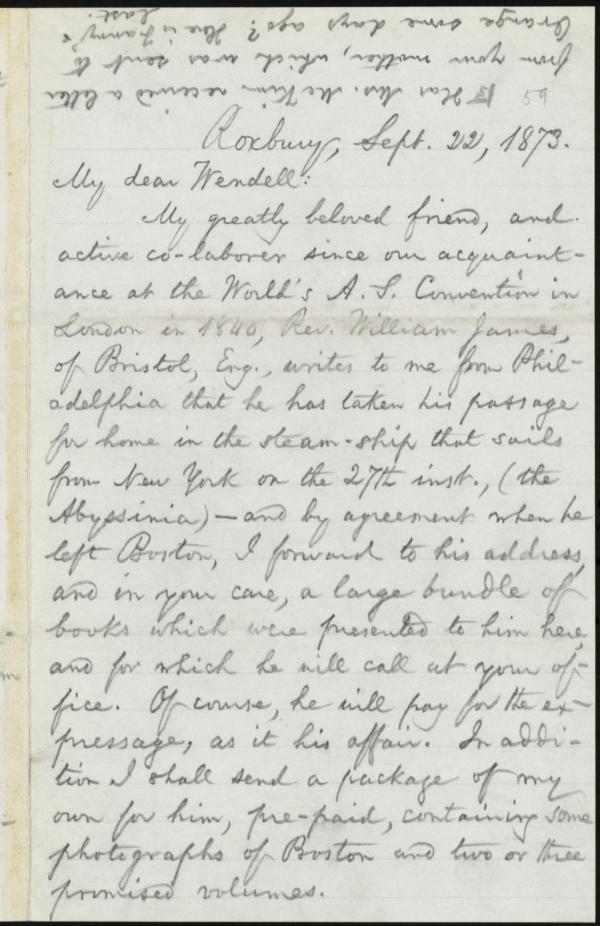 Has Mrs. McKim received a letter
from your mother, which was sent to
Orange some days ago? Hre is Fanny's
last.
59
Roxbury, Sept. 22, 1873.
My dear Wendell:
My greatly beloved friend, and
active co-laborer since our acquaint-
ance at the World's A. S. Convention in
London in 1840, Rev. William James,
of Bristol, Eng., writes to me from Phil-
adelphia that he has taken his passage
for home in the steam-ship that sails
from New York on the 27th inst., (the
Abyssinia)—and by agreement when he
left Boston, I forward to his address,
and in your care, a large bundle of
books which were presented to him here,
and for which he will call at your of-
fice. Of course, he will pay for the ex-
pressage, as it his affair. In addi-
tion I shall send a package of my
own for him, pre-paid, containing some
photographs of Boston and two or three
promised volumes.